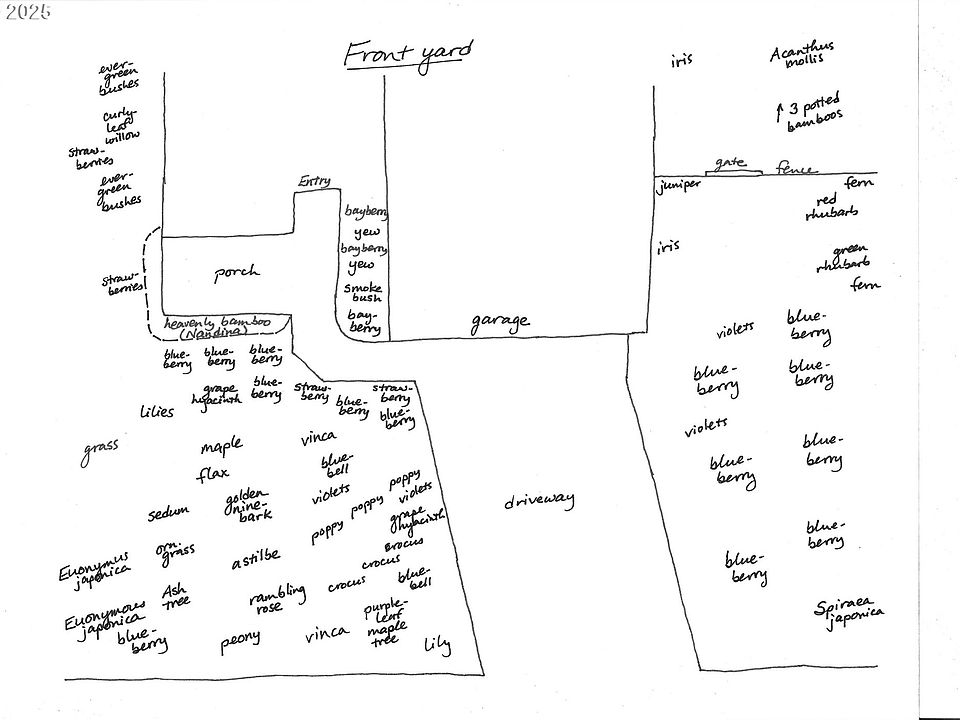 2025
Front yard
ever-
green
bushes
curly-
leaf
willow
straw-
berries
ever-
green
bushes
straw-
berries
Entry
porch
heavenly bamboo
(Nandina)
bayberry
yew
bayberry
yew
smoke
bush
bay-
berry
garage
iris
Acanthus
mollis
↑ 3 potted
bamboos
gate
fence
juniper
fern
red
rhubarb
iris
green
rhubarb
fern
violets
blue-
berry
blue-
berry
blue-
berry
violets
blue-
berry
blue-
berry
blue-
berry
blue-
berry
Spiraea
japonica
driveway
blue-
berry
blue-
berry
blue-
berry
lilies
grape
hyacinth
blue-
berry
straw-
berry
blue-
berry
straw-
berry
blue-
berry
grass
maple
vinca
flax
blue-
bell
sedum
golden
nine-
bark
violets
poppy
poppy
poppy
violets
grape
hyacinth
Euonymus
japonica
orn.
grass
astilbe
crocus
crocus
crocus
blue-
bell
Euonymous
japonica
Ash
tree
rambling
rose
blue-
berry
peony
vinca
purple-
leaf
maple
tree
lily